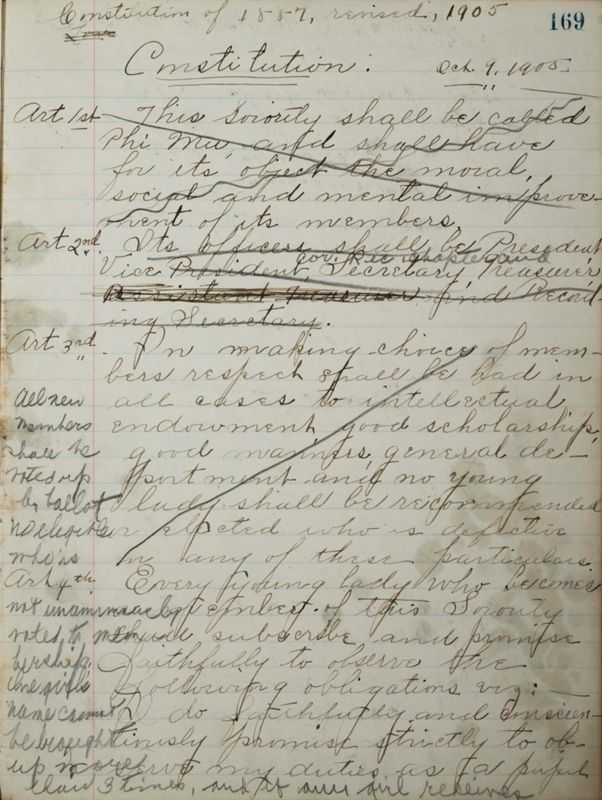 Constitution of 1887, revised, 1905
169
Constitution. Oct. 9, 1905
Art 1st This Sorority shall be called
Phi Mu, and shall have
for its object the moral,
social and mental improve-
ment of its members.
Art 2nd Its officers shall be President,
cor. Sec
Vice President, Secretary, Treasurer
Assistant Treasurer and Record-
ing Secretary.
Art 3rd In making choice of mem-
bers respect shall be had in
all cases to intellectual
endowment, good scholarship,
good manners, general de-
portment and no young
lady shall be recommended
or elected who is defective
in any of these particulars.
All new
members
shall be
voted up
by ballot
No
who is
not unanimously
voted to mem
bership.
one girl's
name cannot
be brought
up more
than 3 times, and if any girl receives
Art 4th Every young lady who becomes
a member of this Sorority
shall subscribe and promise
faithfully to observe the
following obligations viz:-
I do faithfully and conscien-
tiously promise strictly to ob-
serve my duties as a pupil